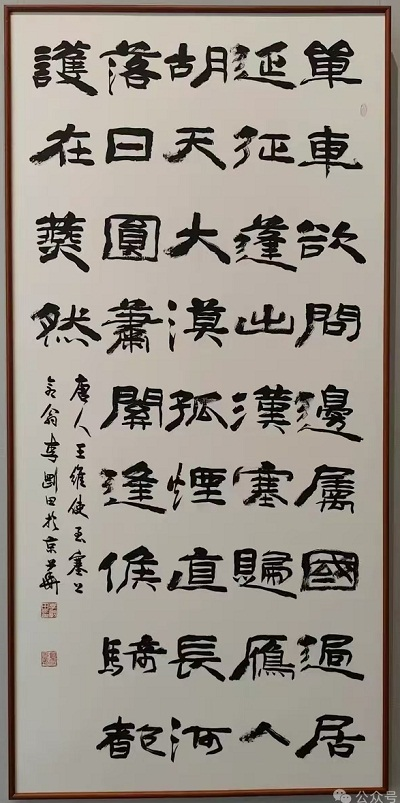 單車欲問邊屬國過居
延征蓬出漢塞歸鴈人
胡天大漠孤煙直長河
落日圓蕭關逢候騎都
護在燕然
唐人王維使至塞上
翁李剛田於京華
公众号